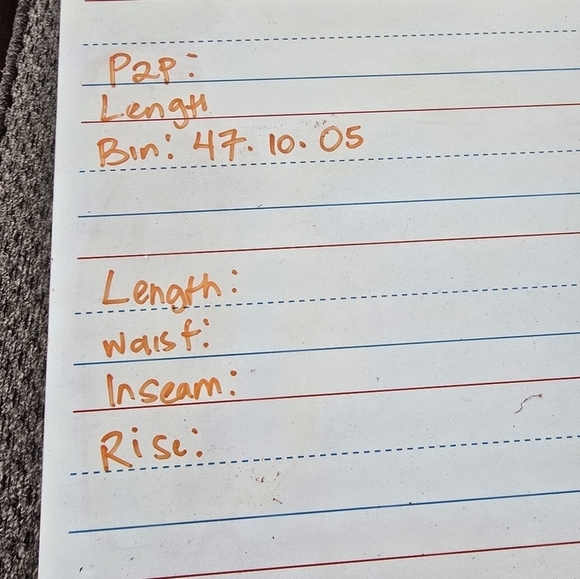 P2P:
Length
Bin: 47.10.05
Length:
Waist:
Inseam:
Rise: